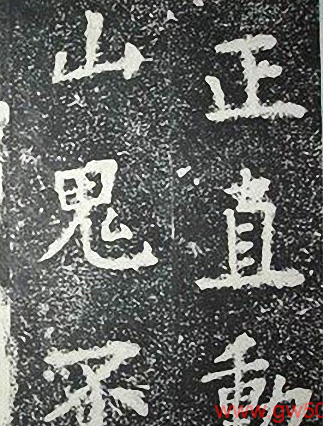 正直動
山鬼
www.gw50